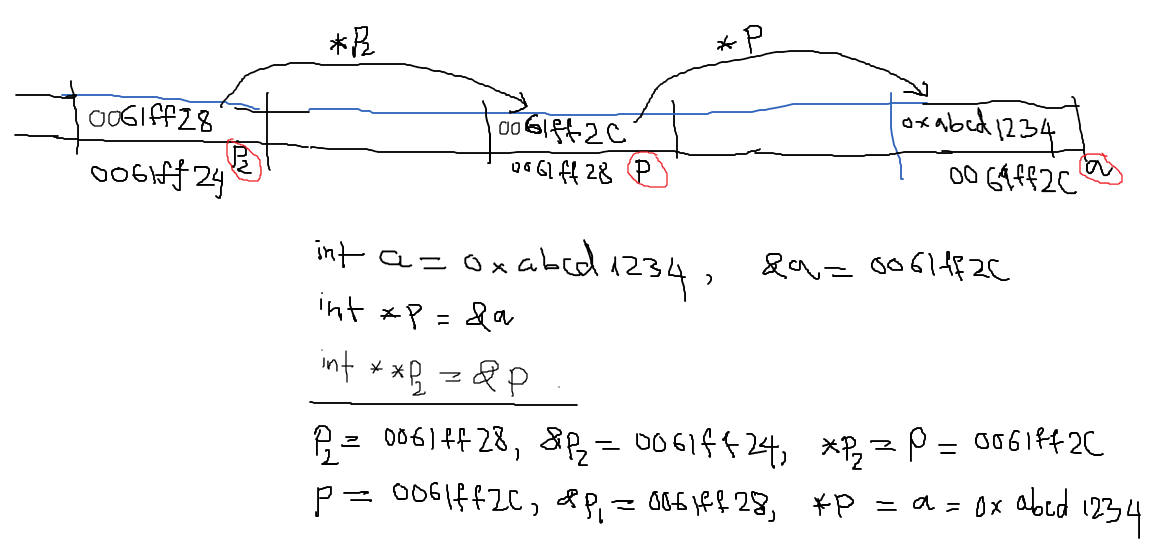 *P2 *P
0061ff28 0061ff2C 0xabcd1234
0061ff24 P2 0061ff28 P 0061ff2C a
int a = 0xabcd1234, &a = 0061ff2C
int *P = &a
int **P2 = &P
P2 = 0061ff28, &P2 = 0061ff24, *P2 = P = 0061ff2C
P = 0061ff2C, &P1 = 0061ff28, *P = a = 0x abcd 1234